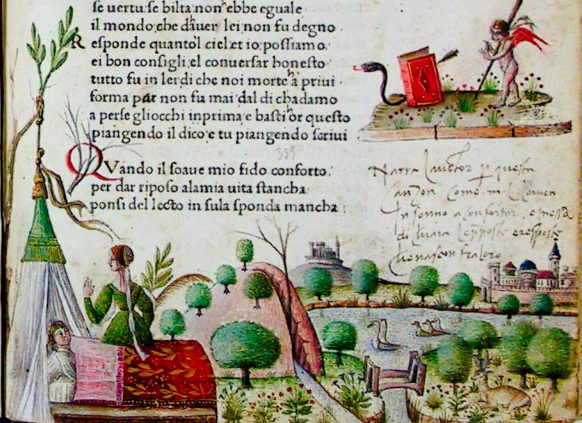 se uertu se bilta non ebbe eguale
il mondo che d'auer lei non fu degno
Responde quanto'l ciel et io possiamo
ei bon consigli el conuersar honesto
tutto fu in lei di che noi morte ha priui
forma par non fu mai dal di ch'adamo
aperse gliocchi in prima e basti or questo
piangendo il dico e tu piangendo scriui
Quando il soaue mio fido conforto
per dar riposo ala mia uita stancha
ponsi del lecto in su la sponda mancha
Narra lauctor questa
Canzon Come
In sonno a confortar
di